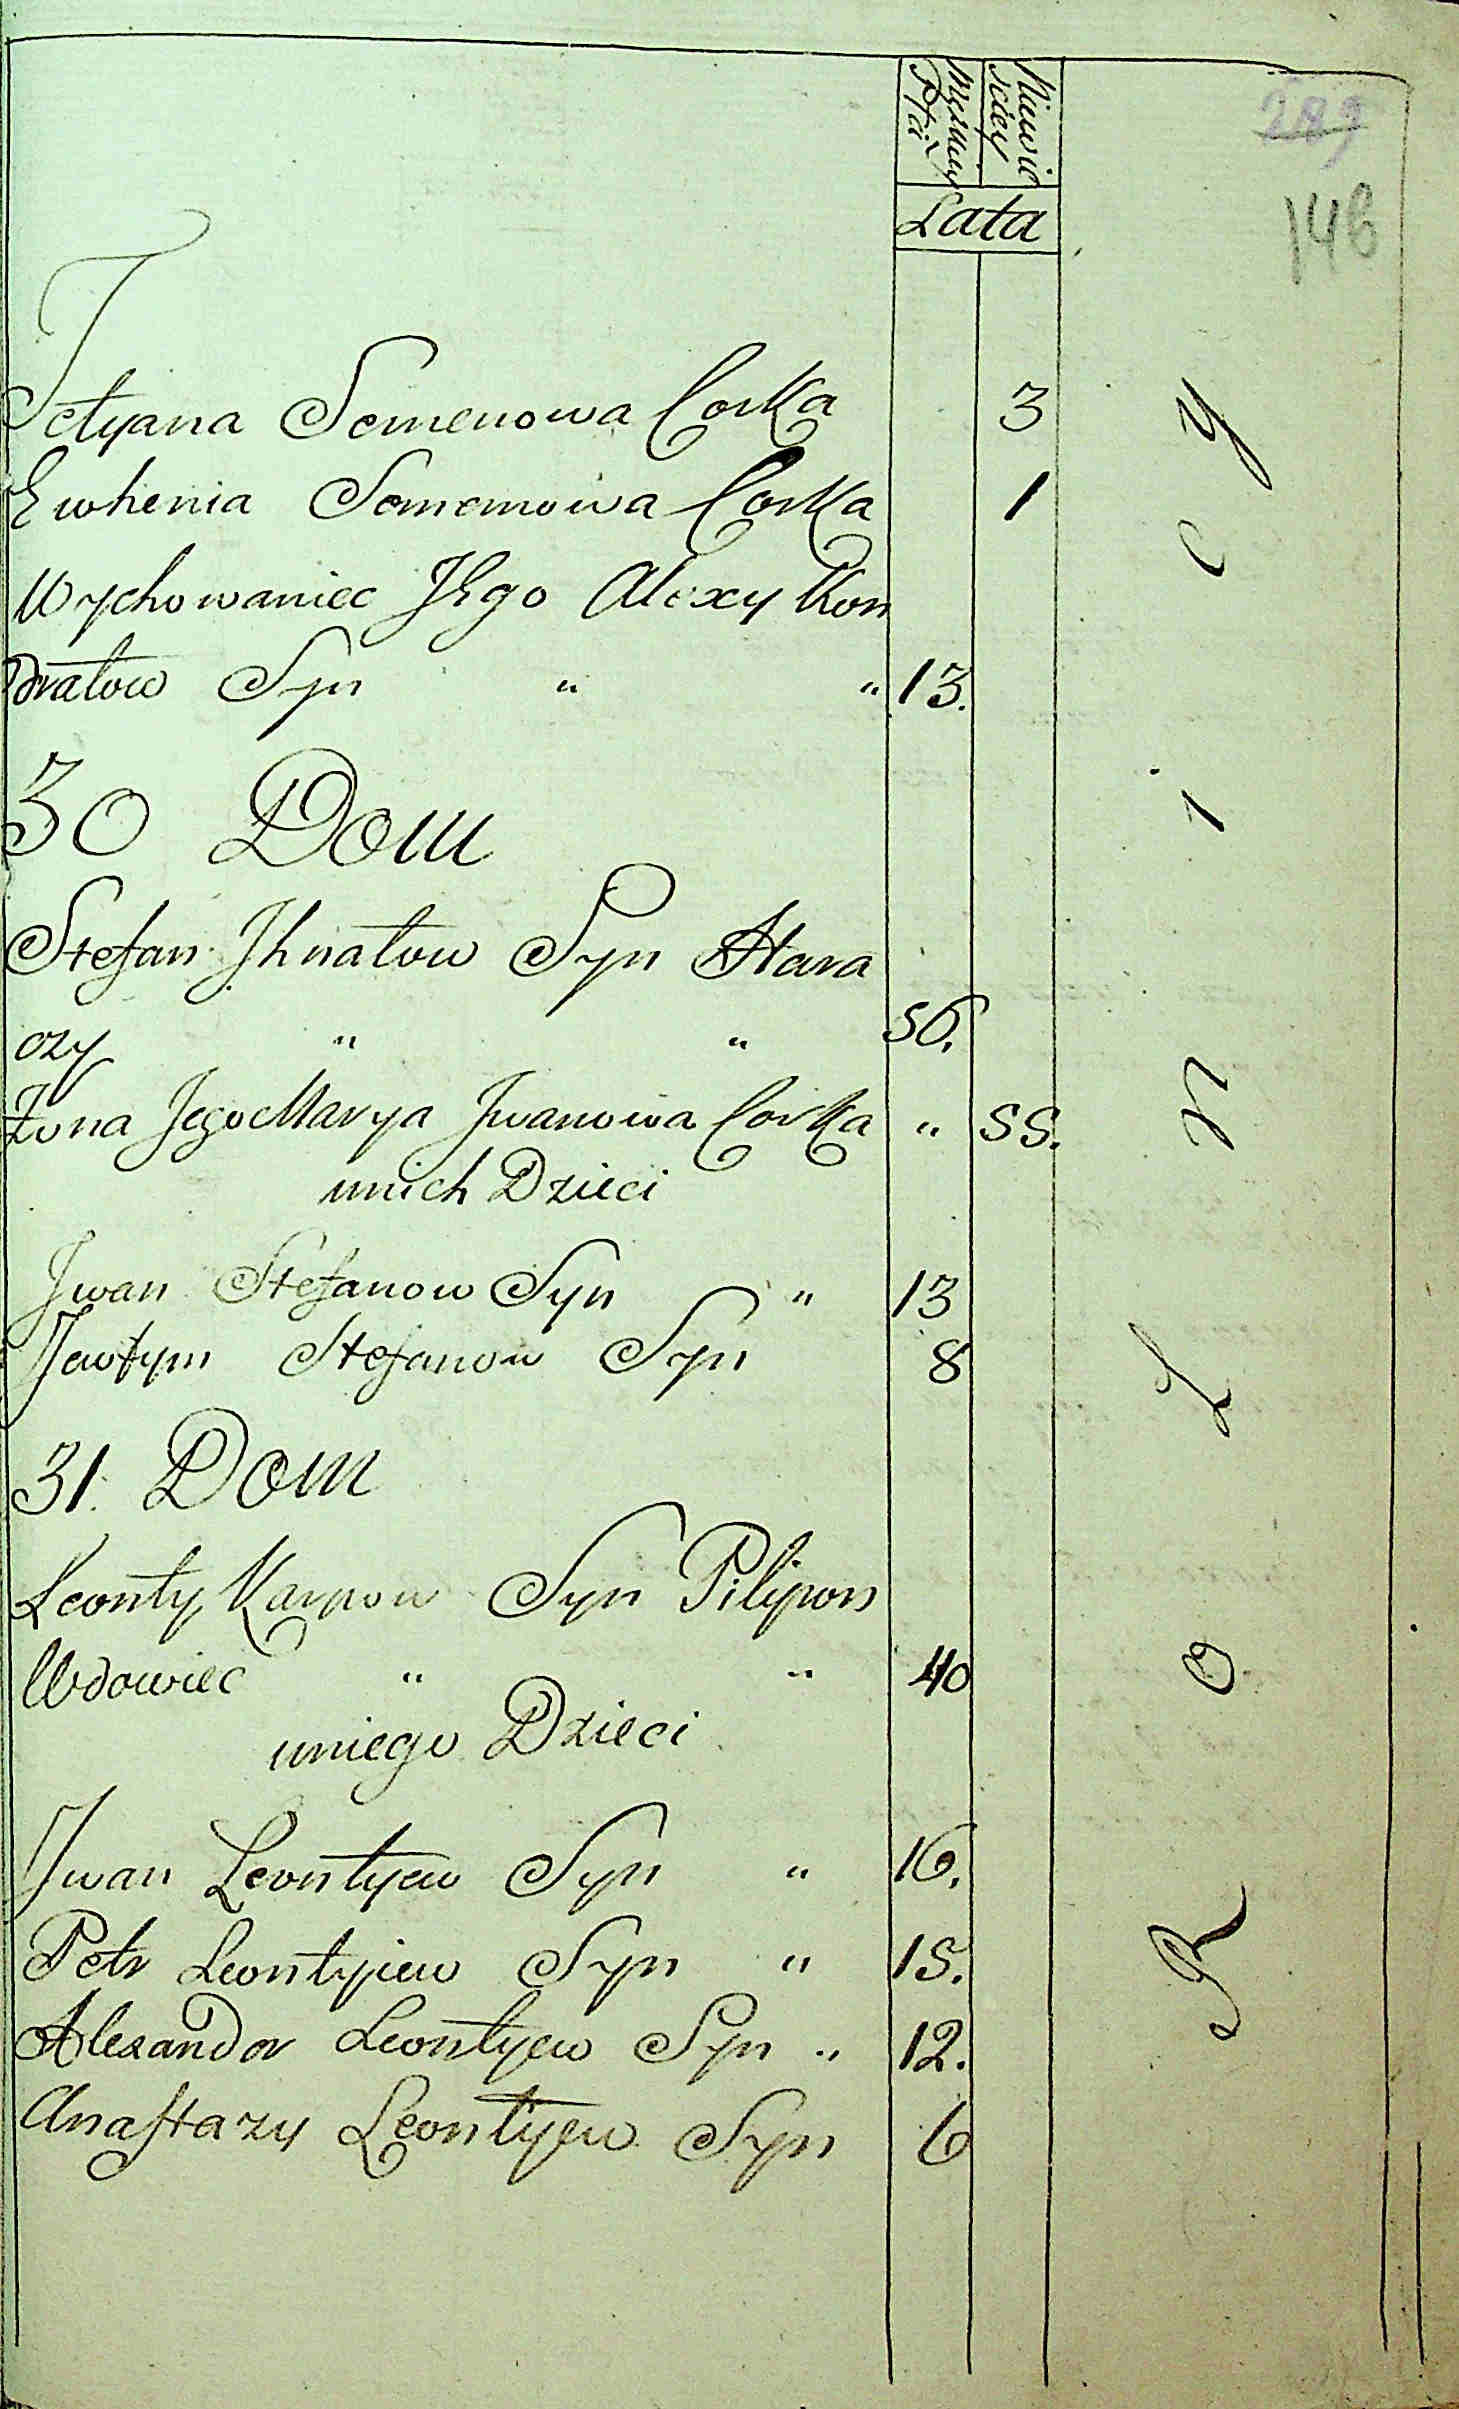 Męskiey Płci
Niewie sciey
289
146
Lata
Tetyana Semenowa Corka 3
Ewhenia Sememowa Corka 1
Wychowaniec JEgo Alexy Kon
dratow Syn " " 13.
30 Dom
Stefan Jhnatow Syn Hara
ozy " " 56.
Żona Jego Marya Jwanowa Corka " 55.
unich Dzieci
Jwan Stefanow Syn " 13
Jewtym Stefanow Syn 8
31. Dom
Leonty Karpow Syn Pilipon
Wdowiec " " 40
uniego Dzieci
Jwan Leontyew Syn " 16.
Petr Leontyiew Syn " 15.
Alexander Leontyew Syn " 12.
Anastazy Leontyew Syn 6
Rolnicy